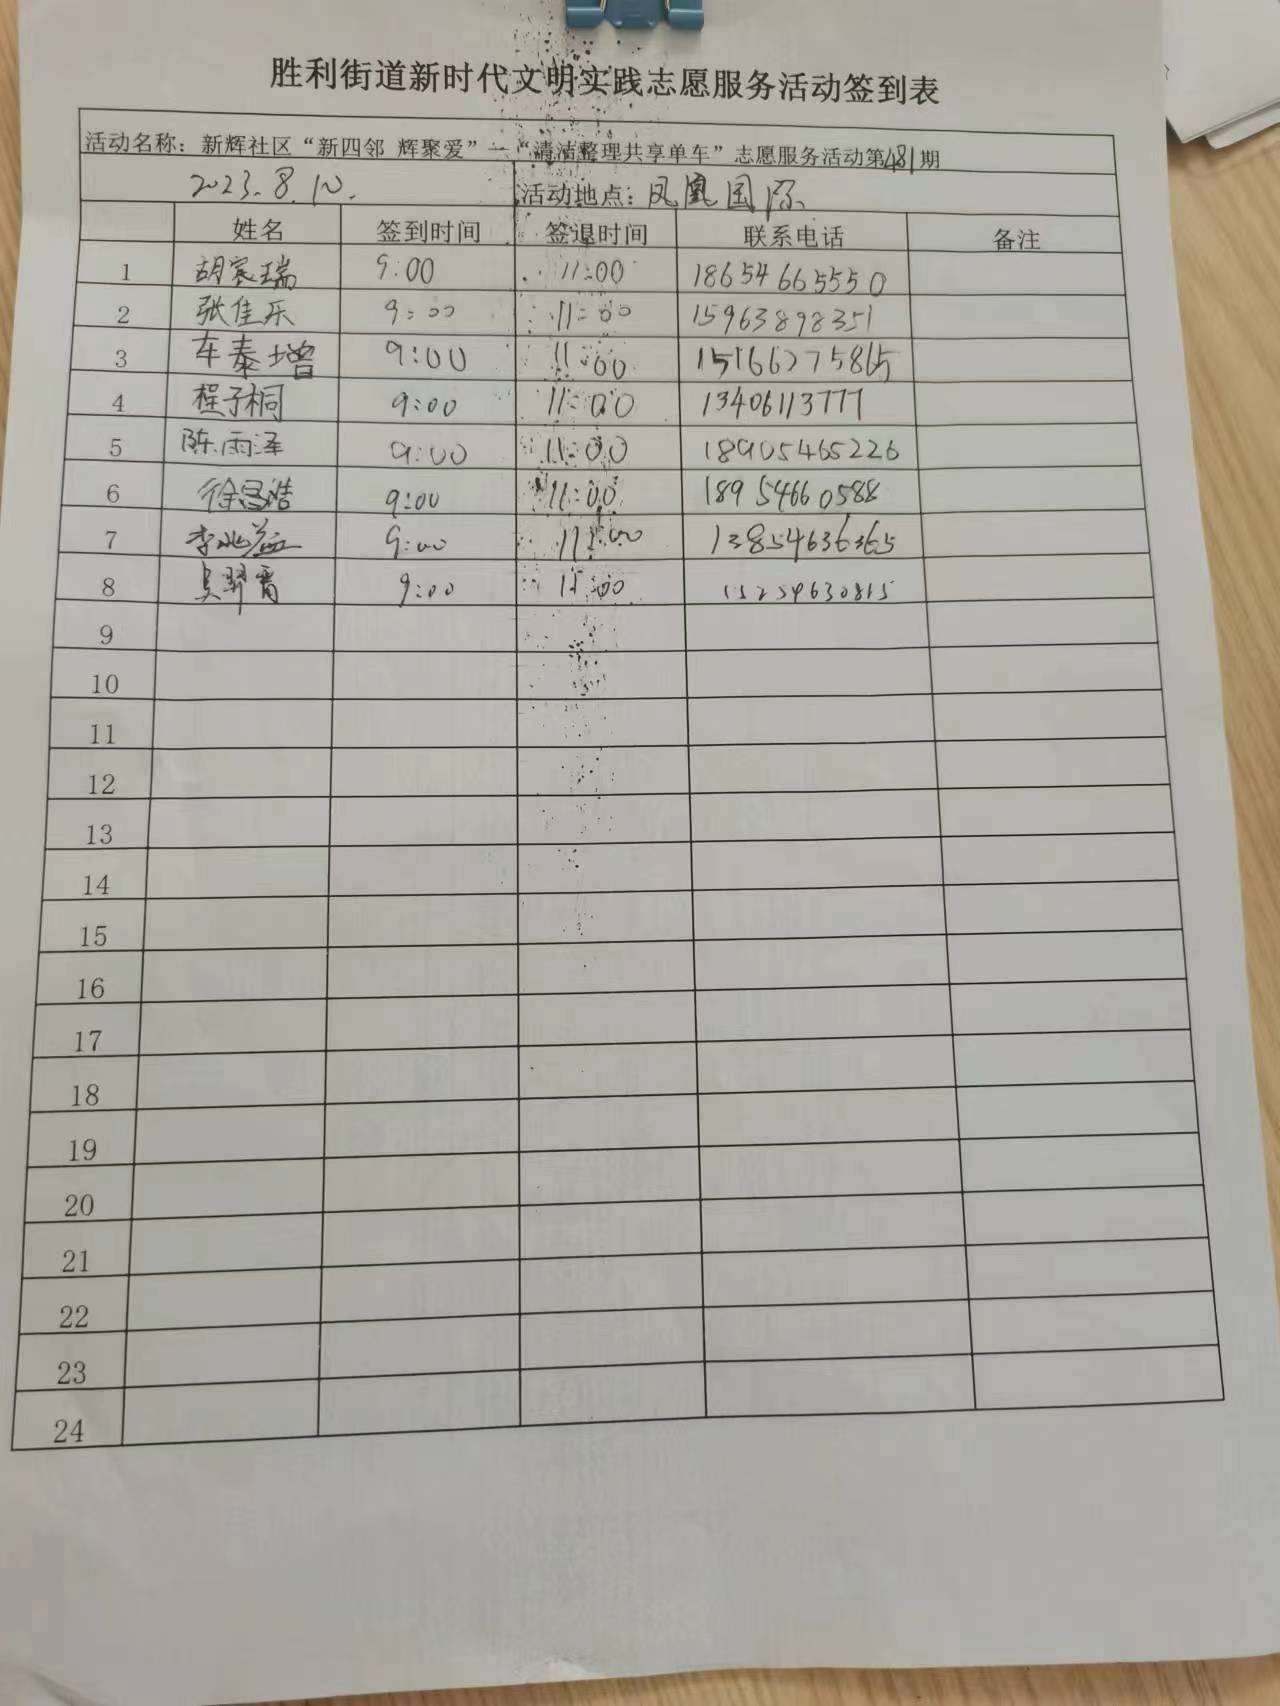 胜利街道新时代文明实践志愿服务活动签到表
活动名称：新辉社区“新四邻 辉聚爱”—“清洁整理共享单车”志愿服务活动第481期
2023.8.10. 活动地点：凤凰国际
姓名 签到时间 签退时间 联系电话 备注
1 胡家瑞 9:00 11:00 18654665550
2 张佳乐 9:00 11:00 15963898351
3 车泰增 9:00 11:00 15166275865
4 程子桐 9:00 11:00 13406113777
5 陈雨泽 9:00 11:00 18905465226
6 徐昌浩 9:00 11:00 18954660588
7 李兆益 9:00 11:00 13854636365
8 9:00 11:00 15254630815
9
10
11
12
13
14
15
16
17
18
19
20
21
22
23
24